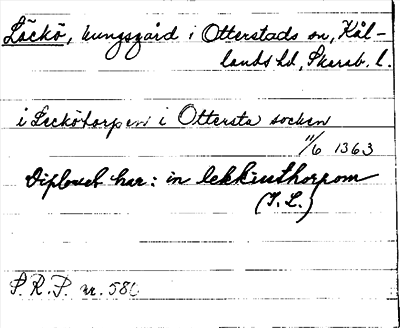 Läckö, kungsgård i Otterstads sn, Kål-
lands hd, Skarab. l.
i Leckötorpen i Ottersta socken
11/6 1363
Diplomet har: in lekkiuthorpom
(I. L.)
S. R. P. nr.